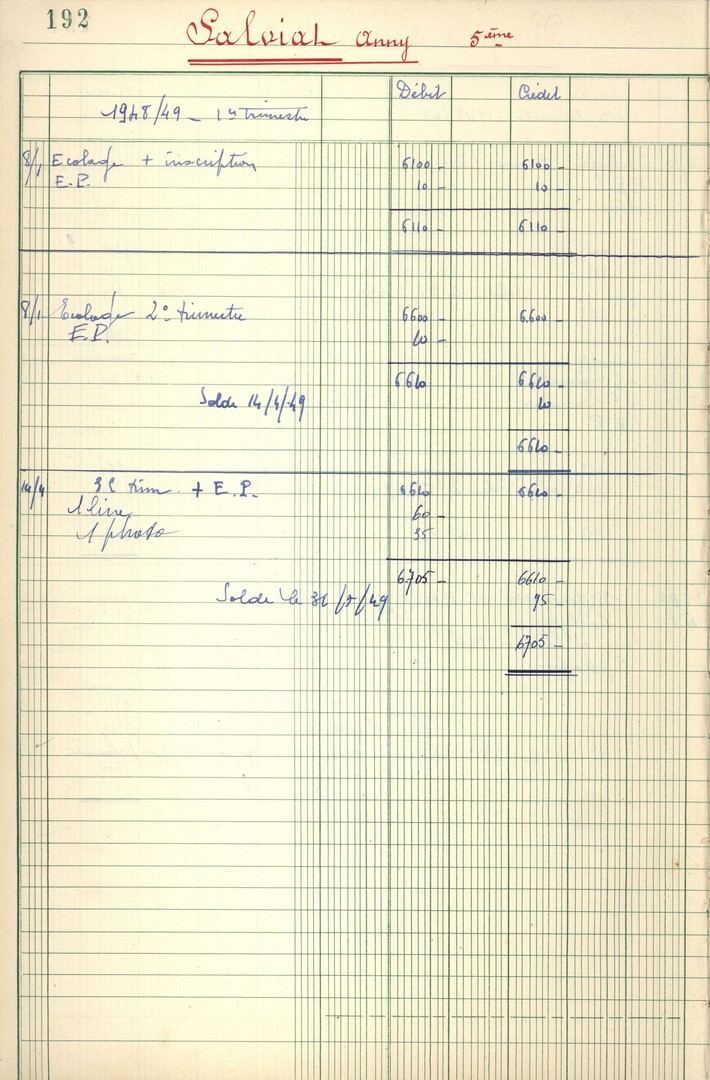 192
Salvial Anny 5ème
Débit Crédit
1948/49 - 1er trimestre
8/1 Ecolage + inscription 6100 - 6100 -
E.P. 10 - 10 -
6110 - 6110 -
8/1 Ecolage 2e trimestre 6600 - 6.600 -
E.P. 10 -
6610 6610 -
Solde 14/4/49 10
6610 -
14/4 3e trim. + E.P. 6610 6610 -
1 livre 60 -
1 photo 35
6705 - 6610 -
Solde le /49 95 -
6705 -